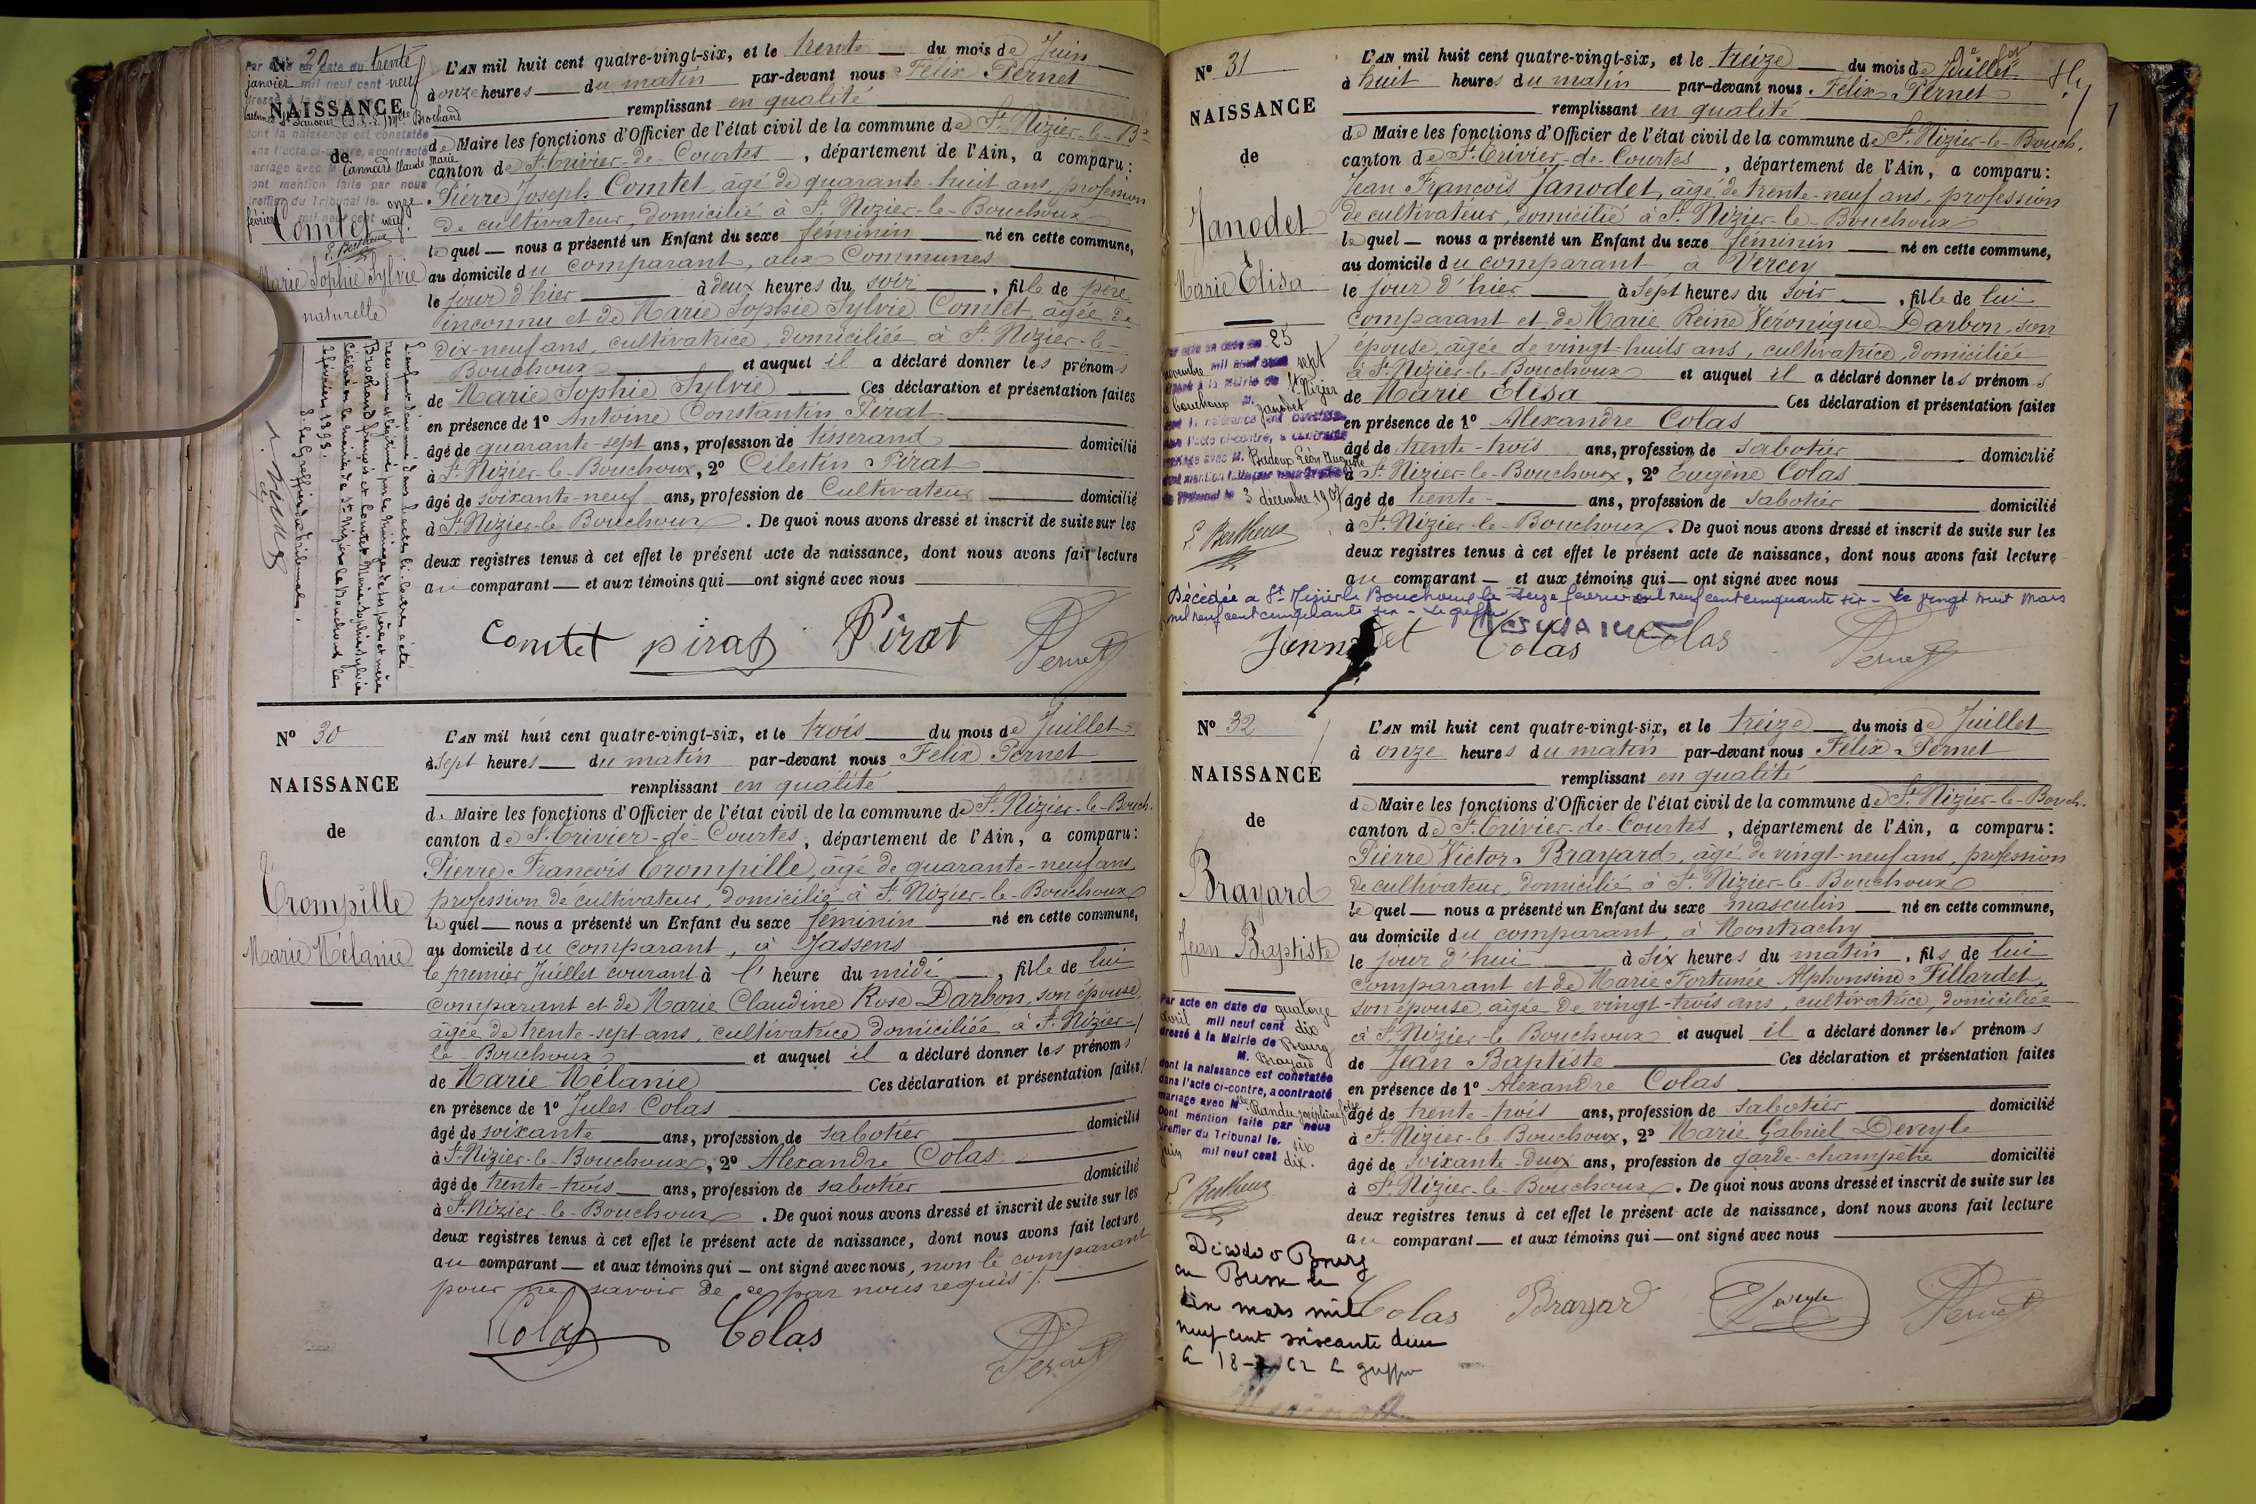 Nº 29
NAISSANCE
de
Comtet
Marie Sophie Sylvie
naturelle
Par acte en date du trente
janvier mil neuf cent neuf
dont la naissance est constatée
dans l'acte ci-contre, a contracté
mariage avec M. Cannard Claude Marie
Dont mention faite par nous
Greffier du Tribunal le onze
février mil neuf cent neuf.
E. Berthoux
L'enfant dénommé dans l'acte ci-contre a été
reconnu et légitimé par le mariage de ses père et mère
Brochand François et Comtet Marie Sophie Sylvie
célébré en la mairie de St Nizier le Bouchoux le
février 1893.
L'AN mil huit cent quatre-vingt-six, et le trente du mois de Juin
à onze heures du matin par-devant nous Félix Pernet
remplissant en qualité
de Maire les fonctions d'Officier de l'état civil de la commune de St Nizier-le-Bx
canton de St Trivier-de-Courtes, département de l'Ain, a comparu:
Pierre Joseph Comtet, âgé de quarante-huit ans, profession
de cultivateur, domicilié à St Nizier-le-Bouchoux
lequel nous a présenté un Enfant du sexe féminin né en cette commune,
au domicile du comparant, aux Communes
le jour d'hier à deux heures du soir, fille de père
inconnu et de Marie Sophie Sylvie Comtet, âgée de
dix-neuf ans, cultivatrice, domiciliée à St Nizier-le-
Bouchoux et auquel il a déclaré donner les prénoms
de Marie Sophie Sylvie Ces déclaration et présentation faites
en présence de 1º Antoine Constantin Pirat
âgé de quarante-sept ans, profession de tisserand domicilié
à St Nizier-le-Bouchoux, 2º Célestin Pirat
âgé de soixante-neuf ans, profession de Cultivateur domicilié
à St Nizier-le-Bouchoux. De quoi nous avons dressé et inscrit de suite sur les
deux registres tenus à cet effet le présent acte de naissance, dont nous avons fait lecture
au comparant et aux témoins qui ont signé avec nous
Comtet pirat Pirat Pernet
Nº 30
NAISSANCE
de
Trompille
Marie Mélanie
L'AN mil huit cent quatre-vingt-six, et le trois du mois de Juillet
à sept heures du matin par-devant nous Félix Pernet
remplissant en qualité
de Maire les fonctions d'Officier de l'état civil de la commune de St Nizier-le-Bouch.
canton de St Trivier-de-Courtes, département de l'Ain, a comparu:
Pierre François Trompille, âgé de quarante-neuf ans
profession de cultivateur, domicilié à St Nizier-le-Bouchoux
lequel nous a présenté un Enfant du sexe féminin né en cette commune,
au domicile du comparant, à Jassens
le premier Juillet courant à l'heure du midi, fille de lui
comparant et de Marie Claudine Rose Darbon, son épouse,
âgée de trente-sept ans, cultivatrice domiciliée à St Nizier-
le Bouchoux et auquel il a déclaré donner les prénoms
de Marie Mélanie Ces déclaration et présentation faites
en présence de 1º Jules Colas
âgé de soixante ans, profession de sabotier domicilié
à St Nizier-le-Bouchoux, 2º Alexandre Colas
âgé de trente-trois ans, profession de sabotier domicilié
à St Nizier-le-Bouchoux. De quoi nous avons dressé et inscrit de suite sur les
deux registres tenus à cet effet le présent acte de naissance, dont nous avons fait lecture
au comparant et aux témoins qui ont signé avec nous, non le comparant
pour ne savoir de ce par nous requis
Colas Colas Pernet
Nº 31
NAISSANCE
de
Janodet
Marie Elisa
Par acte en date du 25
novembre mil neuf cent sept
dressé à la Mairie de St Nizier
le Bouchoux M. Janodet
dont la naissance est constatée
dans l'acte ci-contre, a contracté
mariage avec M. Badoux Léon Auguste
Dont mention faite par nous Greffier
du Tribunal le 3 décembre 1907
E. Berthoux
L'AN mil huit cent quatre-vingt-six, et le treize du mois de Juillet
à huit heures du matin par-devant nous Félix Pernet
remplissant en qualité
de Maire les fonctions d'Officier de l'état civil de la commune de St Nizier-le-Bouch.
canton de St Trivier-de-Courtes, département de l'Ain, a comparu:
Jean François Janodet, âgé de trente-neuf ans, profession
de cultivateur, domicilié à St Nizier-le-Bouchoux
lequel nous a présenté un Enfant du sexe féminin né en cette commune,
au domicile du comparant, à Vercey
le jour d'hier à sept heures du soir, fille de lui
comparant et de Marie Reine Véronique Darbon, son
épouse, âgée de vingt-huits ans, cultivatrice, domiciliée
à St Nizier-le-Bouchoux et auquel il a déclaré donner les prénoms
de Marie Elisa Ces déclaration et présentation faites
en présence de 1º Alexandre Colas
âgé de trente-trois ans, profession de sabotier domicilié
à St Nizier-le-Bouchoux, 2º Eugène Colas
âgé de trente ans, profession de sabotier domicilié
à St Nizier-le-Bouchoux. De quoi nous avons dressé et inscrit de suite sur les
deux registres tenus à cet effet le présent acte de naissance, dont nous avons fait lecture
au comparant et aux témoins qui ont signé avec nous
Décédée à St Nizier le Bouchoux le seize février mil neuf cent cinquante six - Le vingt huit mars
mil neuf cent cinquante six - Le greffier
Janodet Colas Colas Pernet
Nº 32
NAISSANCE
de
Brayard
Jean Baptiste
Par acte en date du quatorze
avril mil neuf cent dix
dressé à la Mairie de Bourg
M. Brayard
dont la naissance est constatée
dans l'acte ci-contre, a contracté
mariage avec Mlle Randu Joséphine
Dont mention faite par nous
Greffier du Tribunal le six
juin mil neuf cent dix.
E. Berthoux
Décédé à Bourg
en Bresse le
dix mars mil
neuf cent soixante deux
L'AN mil huit cent quatre-vingt-six, et le treize du mois de Juillet
à onze heures du matin par-devant nous Félix Pernet
remplissant en qualité
de Maire les fonctions d'Officier de l'état civil de la commune de St Nizier-le-Bouch.
canton de St Trivier-de-Courtes, département de l'Ain, a comparu:
Pierre Victor Brayard, âgé de vingt-neuf ans, profession
de cultivateur, domicilié à St Nizier-le-Bouchoux
lequel nous a présenté un Enfant du sexe masculin né en cette commune,
au domicile du comparant, à Montrachy
le jour d'hui à six heures du matin, fils de lui
comparant et de Marie Fortunée Alphonsine Fillardet,
son épouse, âgée de vingt-trois ans, cultivatrice, domiciliée
à St Nizier-le-Bouchoux et auquel il a déclaré donner les prénoms
de Jean Baptiste Ces déclaration et présentation faites
en présence de 1º Alexandre Colas
âgé de trente-trois ans, profession de sabotier domicilié
à St Nizier-le-Bouchoux, 2º Marie Gabriel Deveyle
âgé de soixante-deux ans, profession de garde-champêtre domicilié
à St Nizier-le-Bouchoux. De quoi nous avons dressé et inscrit de suite sur les
deux registres tenus à cet effet le présent acte de naissance, dont nous avons fait lecture
au comparant et aux témoins qui ont signé avec nous
Colas Brayard Deveyle Pernet